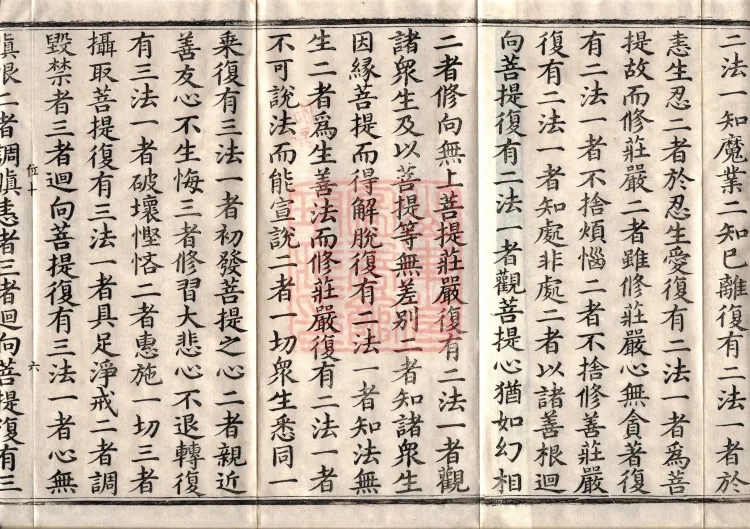 二法一知魔業二知已離復有二法一者於
恚生忍二者於忍生愛復有二法一者爲菩
提故而修莊嚴二者雖修莊嚴心無貪著復
有二法一者不捨煩惱二者不捨修善莊嚴
復有二法一者知處非處二者以諸善根迴
向菩提復有二法一者觀菩提心猶如幻相
二者修向無上菩提莊嚴復有二法一者觀
諸衆生及以菩提等無差别二者知諸衆生
因縁菩提而得解脫復有二法一者知法無
生二者爲生善法而修莊嚴復有二法一者
不可說法而能宣說二者一切衆生悉同一
乘復有三法一者初發菩提之心二者親近
善友心不生悔三者修習大悲心不退轉復
有三法一者破壞慳悋二者惠施一切三者
攝取菩提復有三法一者具足淨戒二者調
毀禁者三者迴向菩提復有三法一者心無
瞋恨二者調瞋恚者三者迴向菩提復有三
位十
六